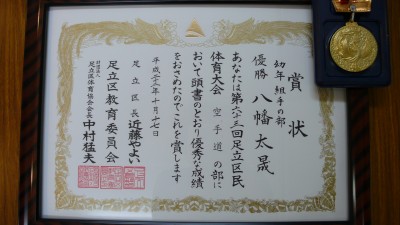 賞状
幼年組手の部
優勝 八幡太晟
あなたは第六十三回足立区民
体育大会 空手道の部に
おいて頭書のとおり優秀な成績
をおさめたのでこれを賞します
平成二十二年十月十七日
足立区長 近藤やよい
足立区教育委員会
足立区体育協会会長 中村猛夫